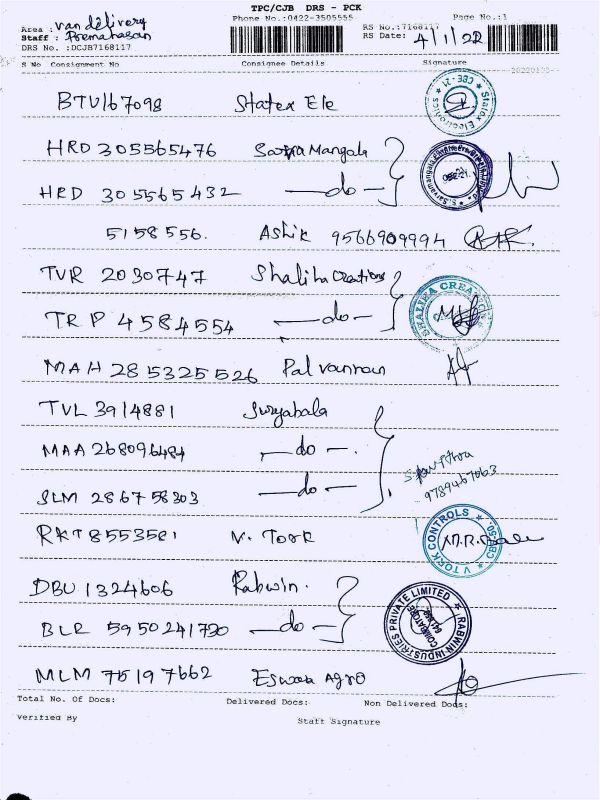 TPC/CJB DRS - PCK
Phone No.:0422-3505555 Page No.:1
Area : van delivery RS No.:7168117
Staff : Premahasan RS Date: 4/1/22
DRS No. :DCJB7168117
S No Consignment No Consignee Details Signature
BTV167098 Statex Ele
HRD 305565476 Mangala
HRD 305565432 —do—
5158556. Ashik 9566909994
TVR 2030747 Shaliha Creations
TRP 4584554 —do—
MAH 285325526 Palvannan
TVL 3914881 Suryabala
MAA 268096484 —do—.
SLM 286758303 —do—
9789467063
RKT8553581 V. Tork
V TORK CONTROLS
DBU 1324606 Rabwin.
BLR 5950241730 —do—
RABWIN INDUSTRIES PRIVATE LIMITED
MLM 75197662 Eswar Agro
Total No. Of Docs: Delivered Docs: Non Delivered Docs:
Verified By Staff Signature